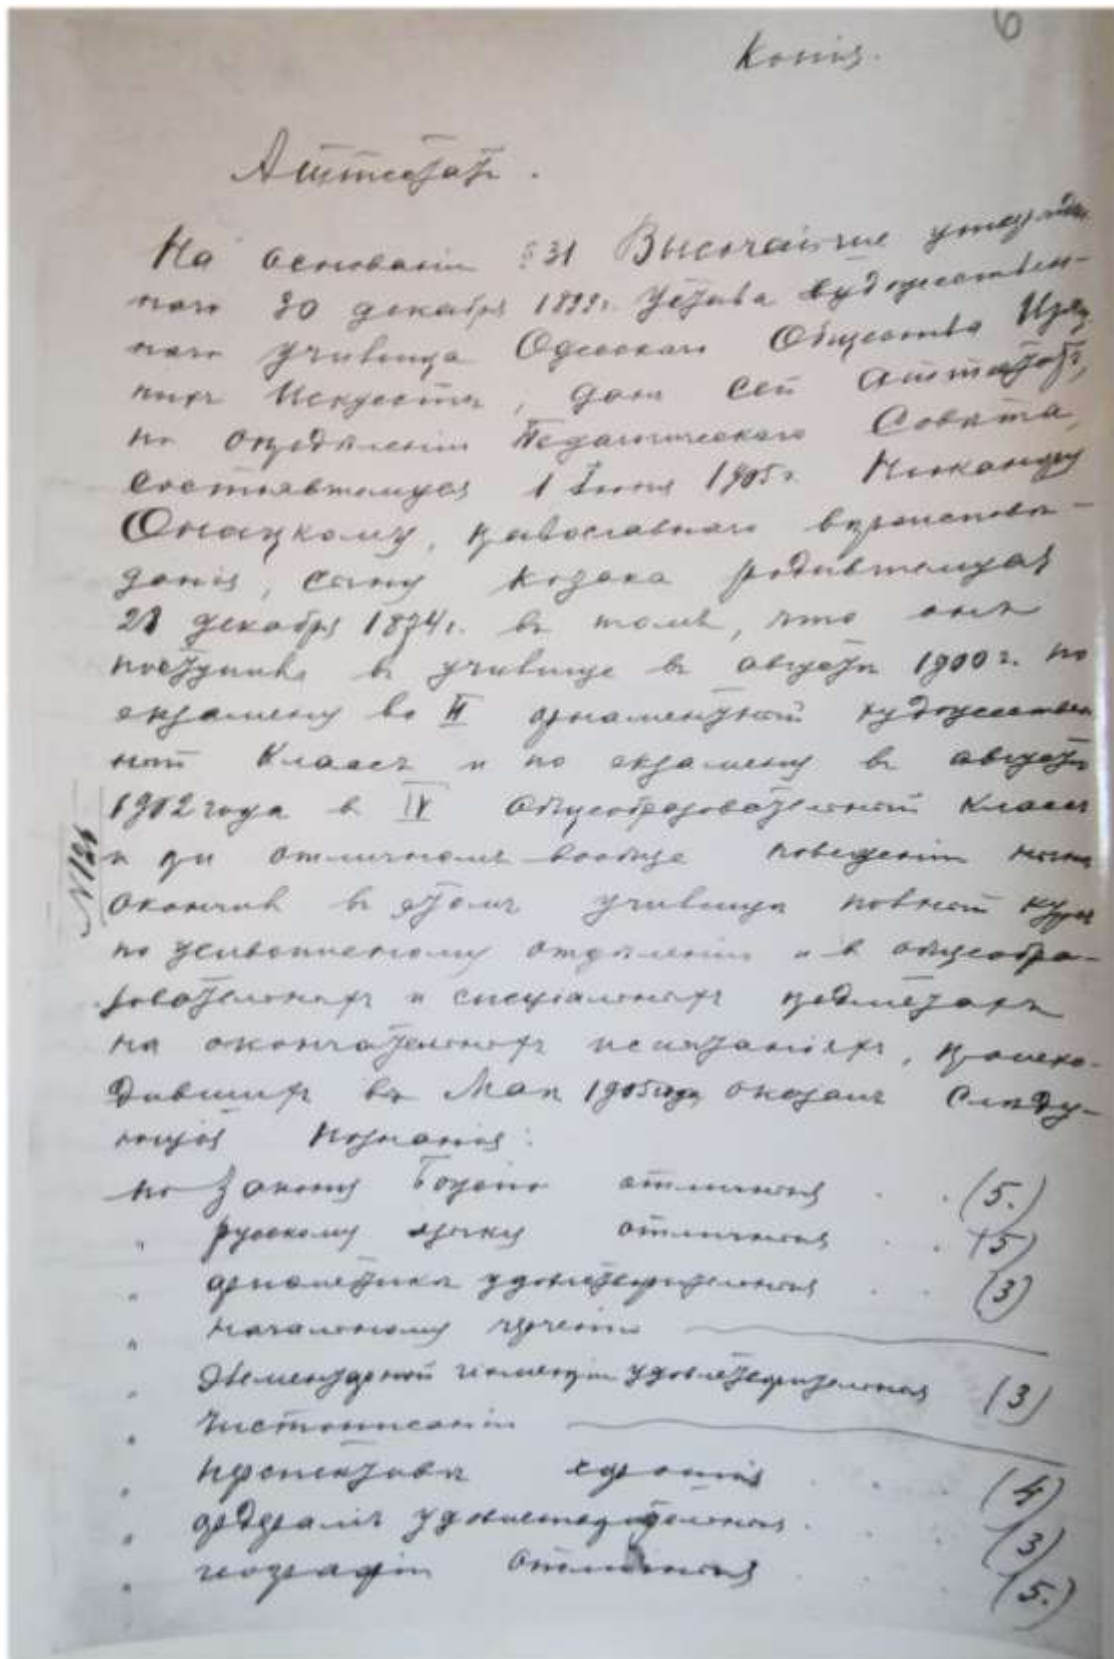 6
Копія.
Аттестатъ.
На основаніи §31 Высочайше утвержден-
наго 30 декабря 1899г. Устава художествен-
наго училища Одесскаго Общества Изящ
ныхъ Искусствъ, данъ сей аттестатъ,
по опредѣленію Педагогическаго Совѣта,
состоявшемуся 1 Іюня 1905г. Никандру
Онацкому, православнаго вѣроисповѣ-
данія, сыну козака родившемуся
28 декабря 1874г. въ томъ, что онъ
поступивъ въ училище въ августѣ 1900г. по
экзамену во II орнаментный художествен
ный классъ и по экзамену въ августѣ
1902 года въ IV общеобразовательный классъ
N 126
и при отличномъ вообще поведеніи
окончивъ въ этомъ училищѣ полный курсъ
по живописному отдѣленію и въ общеобра-
зовательныхъ и спеціальныхъ предметахъ
на окончательныхъ испытаніяхъ, происхо-
дившихъ въ Маѣ 1905 года, оказалъ слѣду-
ющія познанія:
по Закону Божію отличныя . . (5.)
" русскому языку отличныя . . (5)
" ариѳметикѣ удовлетворительныя . . (3)
" начальному черченію
" Элементарной геометріи удовлетворительныя (3)
" чистописанію
" перспективѣ хорошія . . (4)
" ордерамъ удовлетворительныя . . . (3)
" географіи отличныя . . . (5.)